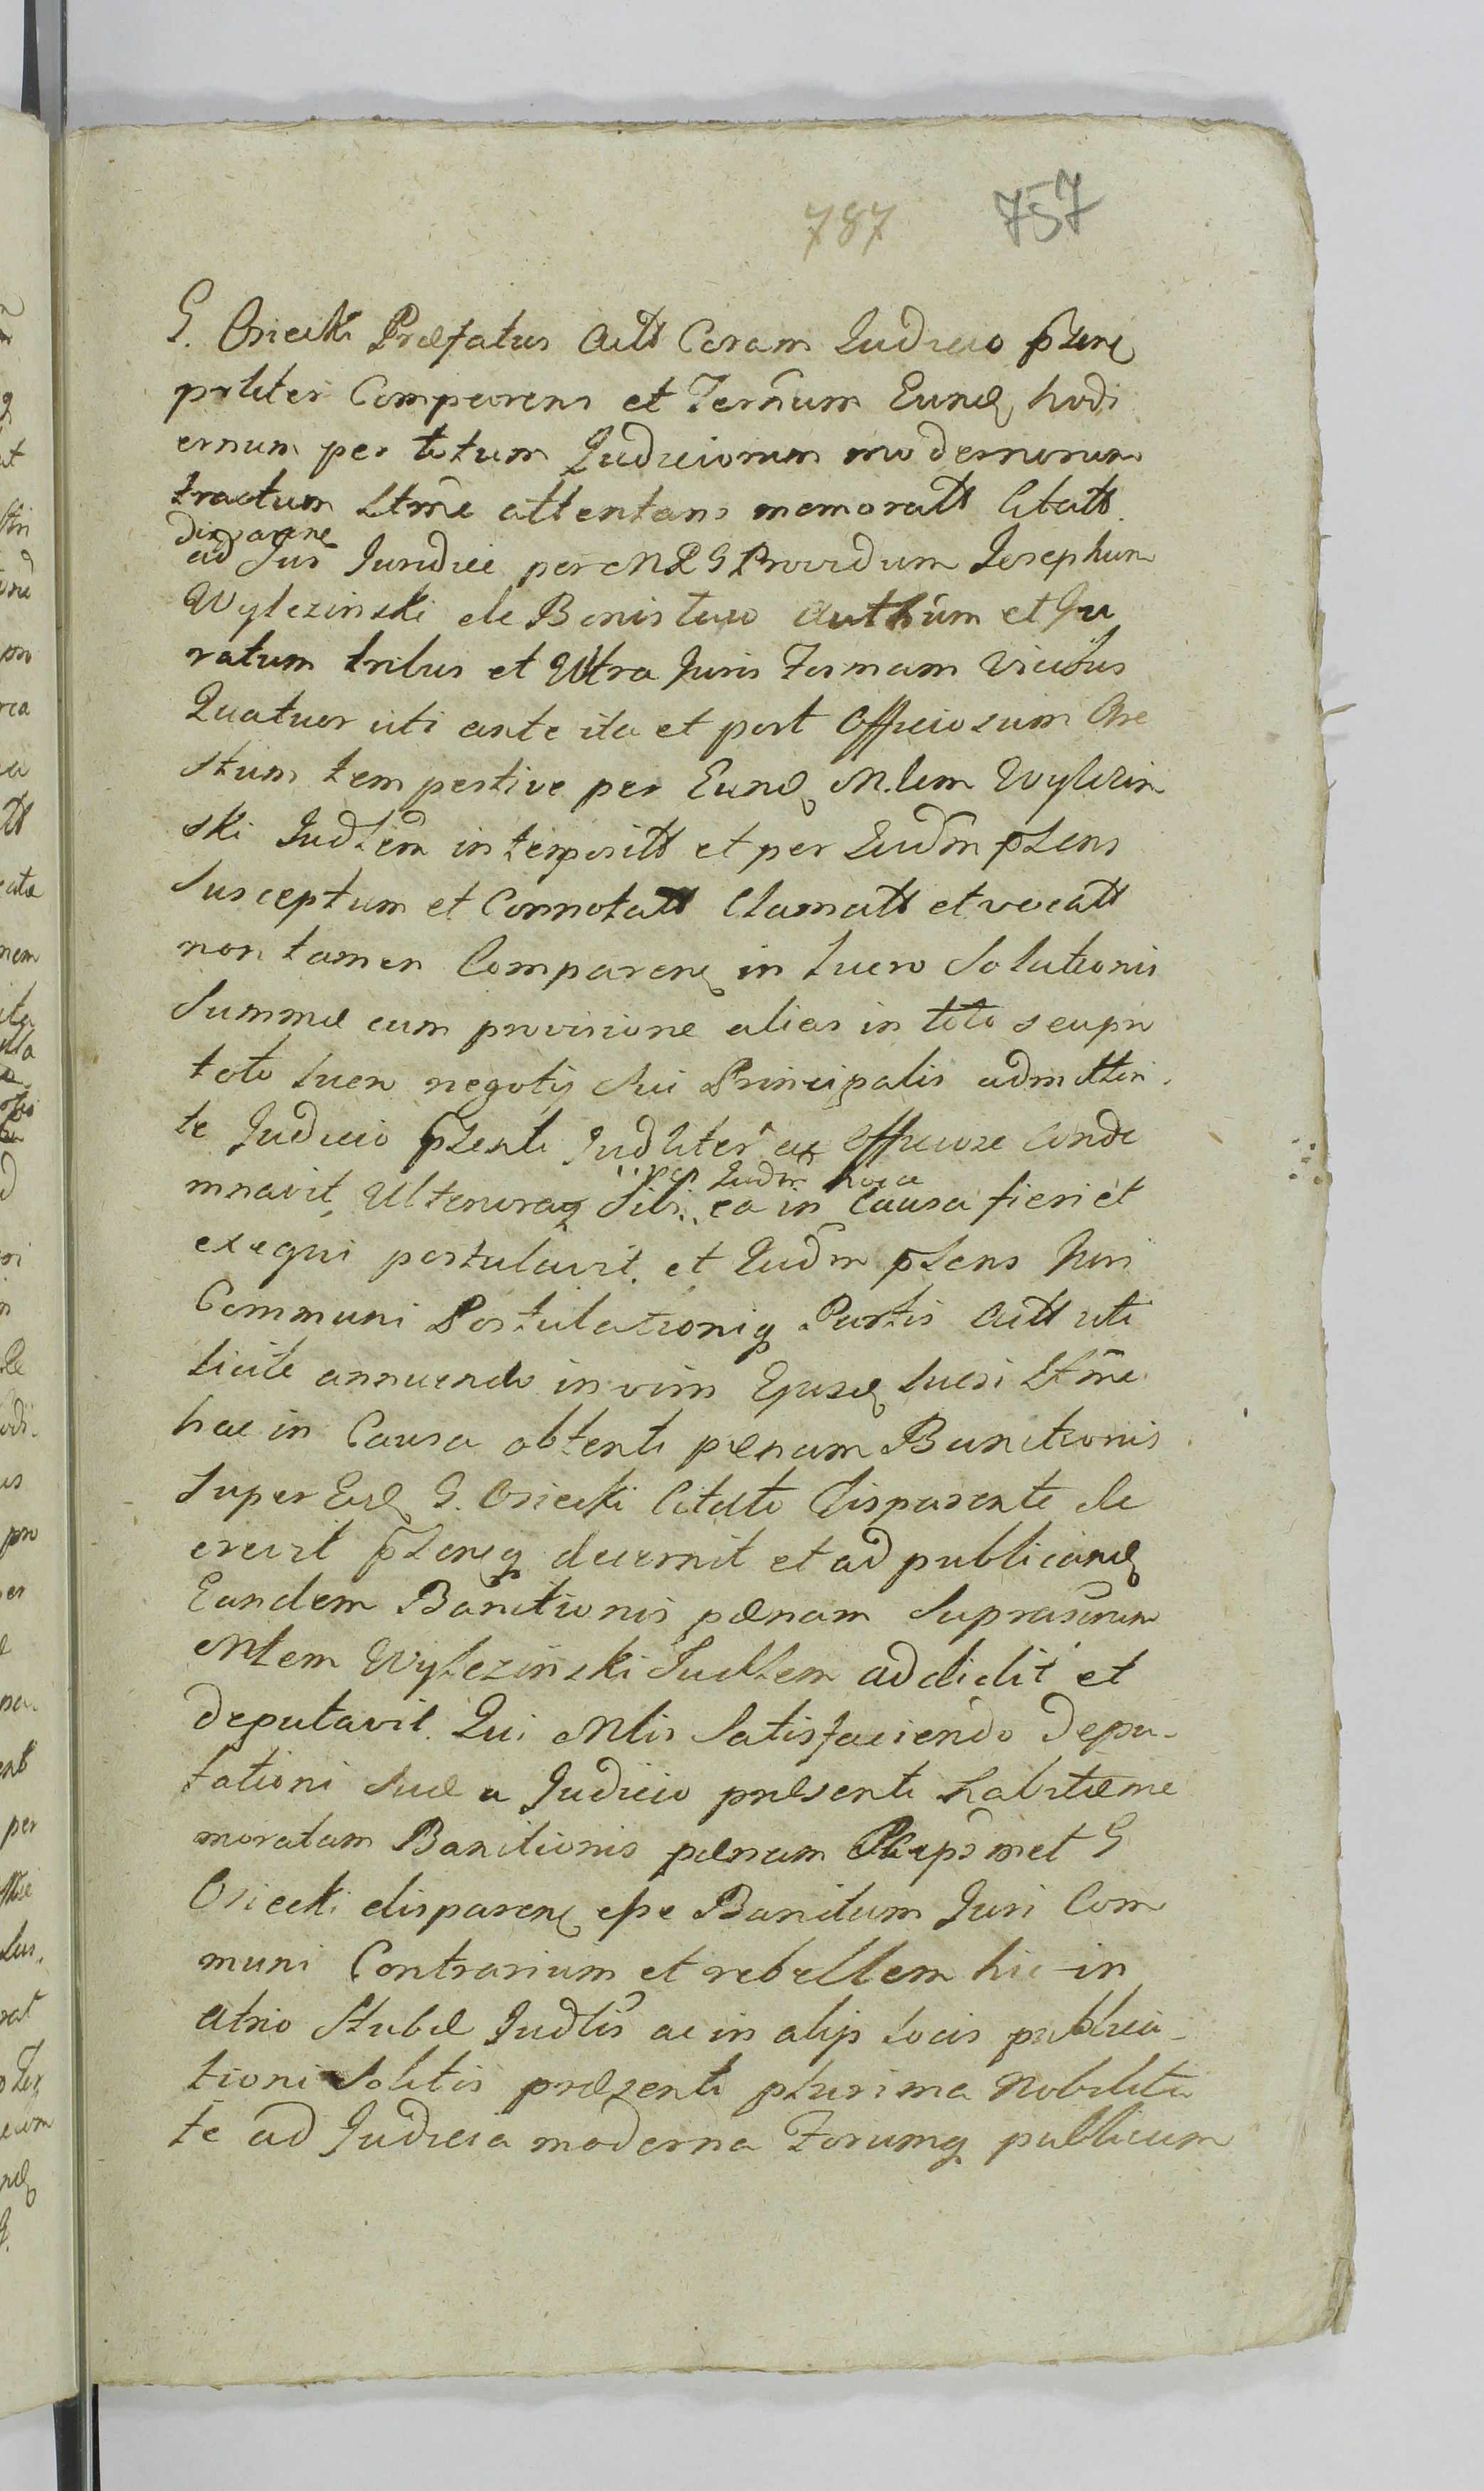 787 757
G. Osiecki Præfatus Actt Coram Judicio pstenẹ
prliter Comparens et Termum Eund hodi
ernum per totum Judiciorum modernorum
tractum Ltme attentans memoratt Citatt
disparenẹ
ad Jus Juridice per M L G Providum Josephum
Wylezinski de Bonis Authum et Ju
ratum tribus et Ultra Juris Formam Vicibus
Quatuor uti ante ita et post Officiosum Are
stum tempestive per Eund Mlem Wylezin
ski Judlem interpositt et per Judm pstens
Susceptum et Connotatt Clamatt et vocatt
non tamen Comparenẹ in Lucro Solutionis
Summæ cum provisione alias in toto seu pro
toto Lucro negotij Sui Principalis admitten
te Judicio pstenti Judliter ac Officiose Conde
per Judm hoce
mnavit, Ulterioraq Sibi ea in Causa fieri et
exequi postulavit. et Judm pstens Juri
Communi Postulationiq Partis Actt uti
licite annuendo in vim Ejusd Lucri Ltme
hac in Causa obtenti pænam Banitionis
super Eod G. Osiecki Citato disparente de
crevit pstenq decernit et ad publicand
Eandem Banitionis pænam Suprascrum
Mlem Wylezinski Judlem addidit et
deputavit. Qui Mlis Satisfaciendo Depu-
tationi Suæ a Judicio præsenti habitæ me
moratam Banitionis pænam G
Osiecki disparenẹ esse Banitum Juri Com
muni Contrarium et rebellem hic in
atrio Stubæ Judlis ac in alijs Locis publica-
tioni Solitis præsenti plurima Nobilita
te ad Judicia moderna Forumq publicum